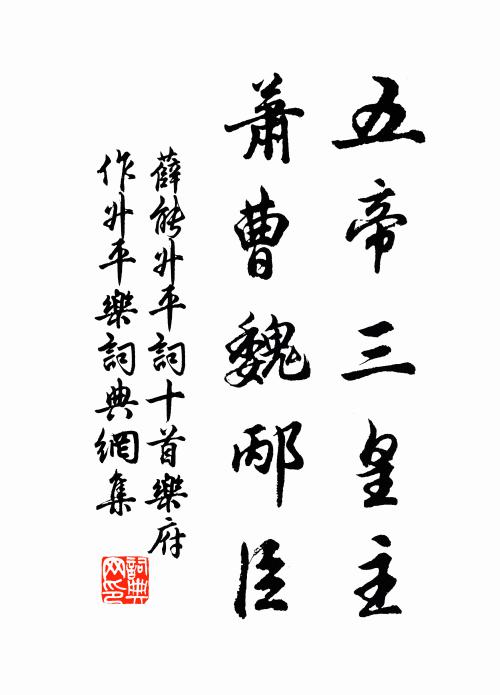 五帝三皇主
蕭曹魏邴臣
薛能升平詞十首樂府
作升平樂詞典網集
詞典
网印